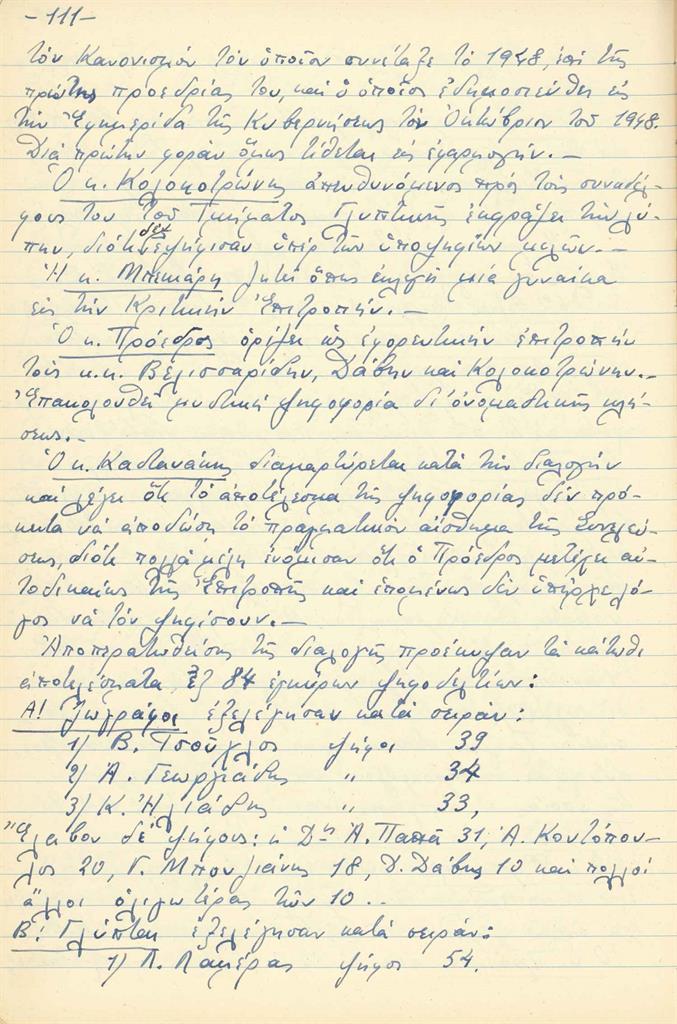 -111-
τόν Κανονισμόν τόν ὁποῖον συνέταξε τό 1948, ἐπί τῆς
πρώτης προεδρίας του, καί ὁ ὁποῖος ἐδημοσιεύθει εἰς
τήν Ἐφημερίδα τῆς Κυβερνήσεως τόν Ὀκτώβριον τοῦ 1948.
Διά πρώτην φοράν ὅμως τίθεται εἰς ἐφαρμογήν.—
Ὁ κ. Κολοκοτρώνης ἀπευθυνόμενος πρός τούς συναδέλ-
φους του τοῦ Τμήματος Γλυπτικῆς ἐκφράζει τήν λύ-
πην, διότι δέν ἐψήφισαν ὑπέρ τῶν ὑποψηφίων μελῶν.—
Ἡ κ. Μπικιάρη ζητεῖ ὅπως ἐκλεγῆ μιά γυναίκα
εἰς τήν Κριτικήν Ἐπιτροπήν.—
Ὁ κ. Πρόεδρος ὁρίζει ὡς ἐφορευτικήν ἐπιτροπήν
τούς κ.κ. Βελισσαρίδην, Δάβην καί Κολοκοτρώνην.—
Ἐπακολουθεῖ μυστική ψηφοφορία δι' ὀνομαστικῆς κλή-
σεως.—
Ὁ κ. Καστανάκης διαμαρτύρεται κατά τήν διαλογήν
καί λέγει ὅτι τό ἀποτέλεσμα τῆς ψηφοφορίας δέν πρό-
κειται νά ἀποδώση τό πραγματικόν αἴσθημα τῆς Συνελεύ-
σεως, διότι πολλά μέλη ἐνόμισαν ὅτι ὁ Πρόεδρος μετέχει αὐ-
τοδικαίως τῆς Ἐπιτροπῆς καί ἑπομένως δέν ὑπῆρχε λό-
γος νά τόν ψηφίσουν.—
Ἀποπερατωθείσης τῆς διαλογῆς προέκυψαν τά κάτωθι
ἀποτελέσματα ἐξ 84 ἐγκύρων ψηφοδελτίων:
Α! Ζωγράφοι ἐξελέγησαν κατά σειράν:
1) Β. Τσοῦχλος ψῆφοι 39
2) Ἀ. Γεωργιάδης " 34
3) Κ. Ἠλιάδης " 33,
Ἔλαβον δέ ψήφους: ἡ Δὶς Ἀ. Παπᾶ 31, Ἀ. Κοντόπου-
λος 20, Γ. Μπουζιάνης 18, Δ. Δάβης 10 καί πολλοί
ἄλλοι ὀλιγωτέρας τῶν 10..
Β! Γλύπται ἐξελέγησαν κατά σειράν:
1) Λ. Λαμέρας ψῆφοι 54.